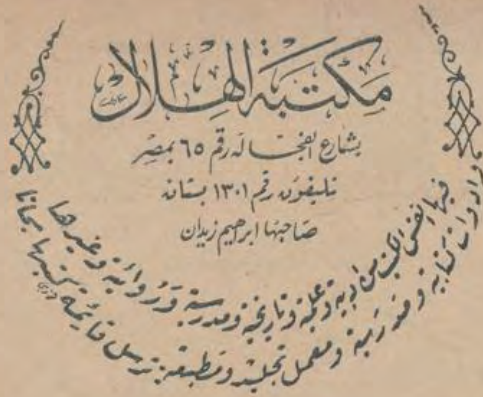 مكتبة الهلال
بشارع الفجالة رقم ٦٥ بمصر
تليفون رقم ١٣٠١ بستان
صاحبها ابراهيم زيدان
فيها أنفس الكتب من أدبية وعلمية وتاريخية ومدرسية وروائية وغيرها
وأدوات كتابية ومدرسية ومعمل تجليد ومطبعة ترسل قائمة كتبها مجانا